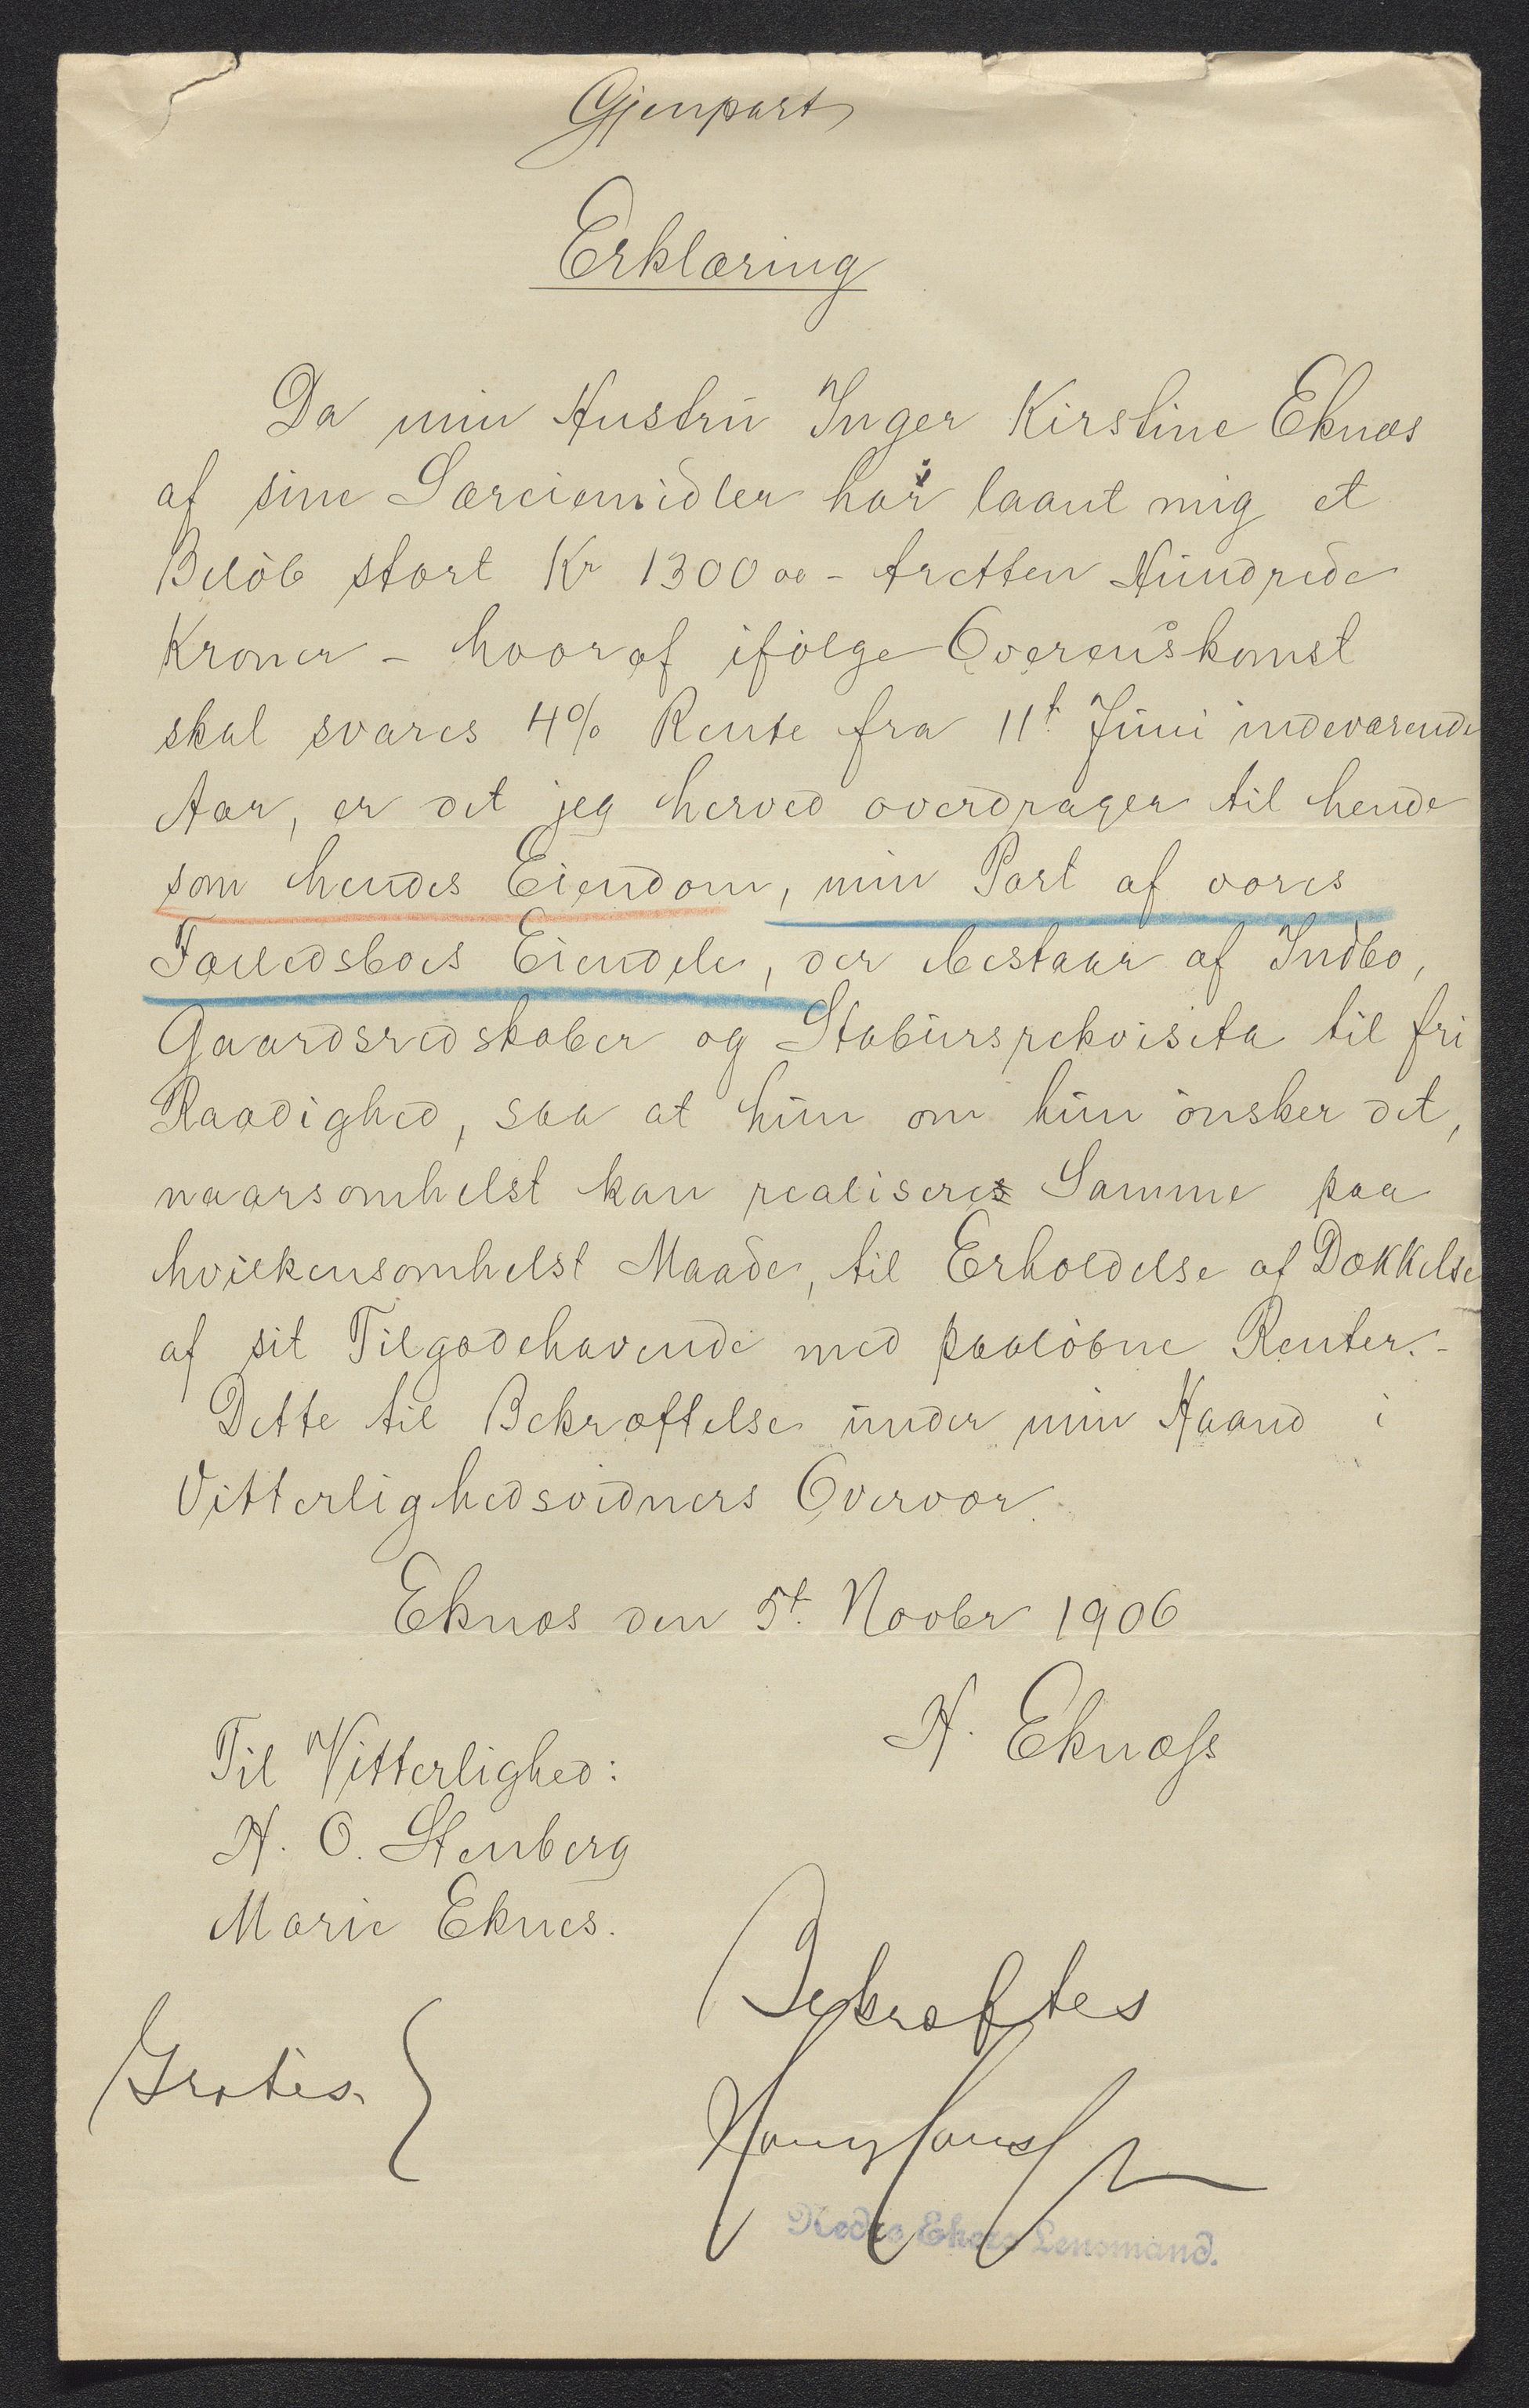 Gjenpart
Erklæring
Da min Hustru Inger Kirstine Eknæs
af sine Særeiemidler har laant mig et
Beløb stort Kr 1300 00 - tretten Hundrede
Kroner - hvoraf ifølge Overenskomst
skal svares 4% Rente fra 11t Juni indeværende
Aar, er det jeg herved overdrager til hende
som hendes Eiendom, min Part af vores
Fællesboes Eiendele, der bestaar af Indbo,
Gaardsredskaber og Stabursrekvisita til fri
Raadighed, saa at hun om hun ønsker det,
naarsomhelst kan realisere Samme paa
hvilkensomhelst Maade, til Erholdelse af Dækkelse
af sit Tilgodehavende med paaløbne Renter.-
Dette til Bekræftelse under min Haand i
Vitterlighedsvidners Overvær.
Eknæs den 5t. Novbr 1906
H. Eknæss
Til Vitterlighed:
H. O. Stenberg
Marie Eknes.
Bekræftes
Gratis.
Nedre Ekers Lensmand.